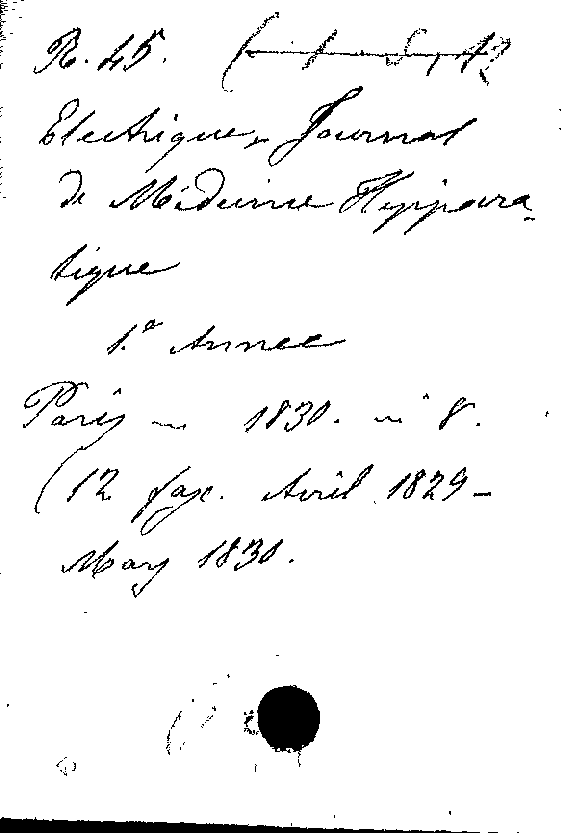 R. 45.
Electrique, Journal
de Médecine Hyppocra-
tique
1.e Année
Paris — 1830. in 8.
(12 fasc. Avril 1829 -
Mars 1830.